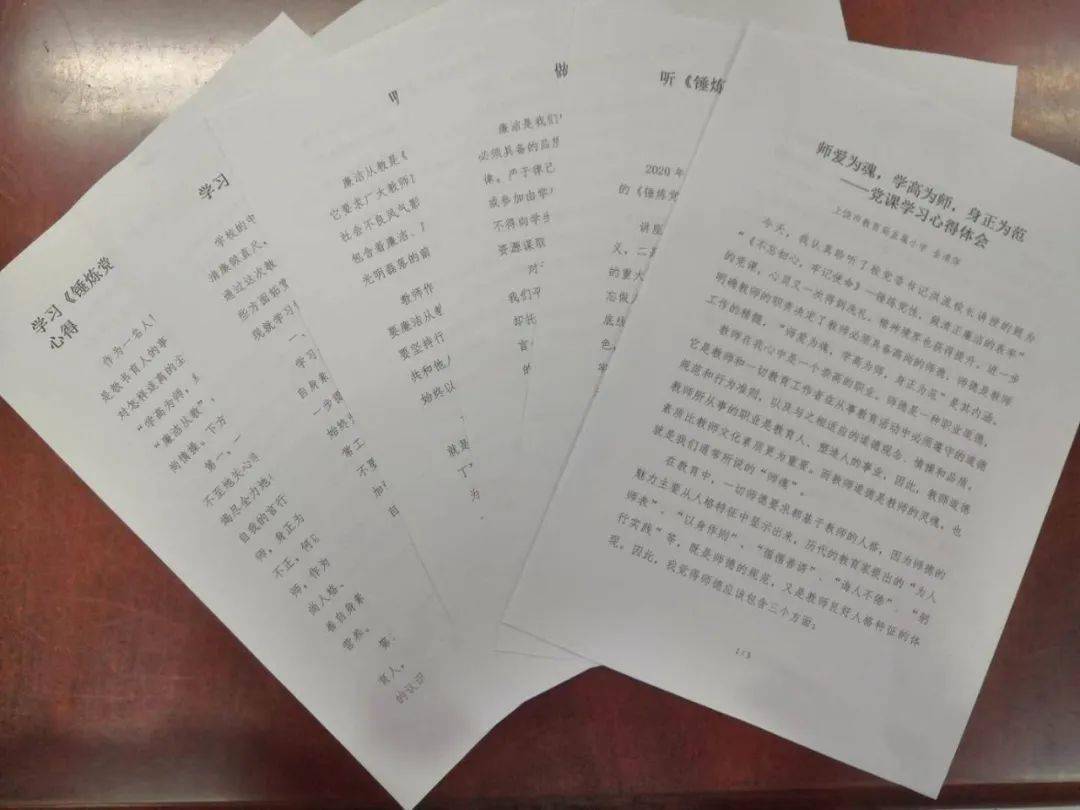 学习《锤炼党
心得
作为一名人
是教书育人的事
对怎样业高的
“学高为师，
“廉洁从教”，
尚情操。下方
第一，
不至地失心
竭尽全力地
自我的言行
师，身正为
不正，何以
师，作为
尚人格、
着自身素
营养。
第
育人，
的认识
学习
学校的中
清廉
通过这次教
些方面
一、
学习
自身素
一步
始终
常工
不
加
目
廉洁从教是《
它要求广大教师
社会不良风气影
包含着廉洁、
光明磊落的前
教师作
要廉洁从
要坚持行
共和他
始终以
就是
丁
为
做
廉洁是我们
必须具备的品
体。严于律己
或参加由学
不得向学生
资源谋取
对
我们
却托
盲
听《锤炼
2020 年
的《锤炼党
讲座
义，二是
的重大
忘做
底线
色，
师爱为魂，学高为师，身正为范
——党课学习心得体会
上饶市教育局直属小学
今天，我认真聆听了校党委书记洪波校长讲授的题为
“《不忘初心，牢记使命》—锤炼党性，做清正廉洁的表率”
的党课，心灵又一次得到洗礼，精神境界也获得提升，进一步
明确教师的职责决定了教师必须具备高尚的师德，师德是教师
工作的精髓，“师爱为魂，学高为师，身正为范”是其内涵。
教师在我心中是一个崇高的职业。师德是一种职业道德，
它是教师和一切教育工作者在从事教育活动中必须遵守的道德
规范和行为准则，以及与之相适应的道德观念、情操和品质。
教师所从事的职业是教育人、塑造人的事业，因此，教师道德
素质比教师文化素质更为重要。而教师道德是教师的灵魂，也
就是我们通常所说的“师魂”。
在教育中，一切师德要求都基于教师的人格，因为师德的
魅力主要从人格特征中显示出来，历代的教育家提出的“为人
师表”、“以身作则”、“循循善诱”、“诲人不倦”、“躬
行实践”等，既是师德的规范，又是教师良好人格特征的体
现。因此，我觉得师德应该包含三个方面：
1 / 3